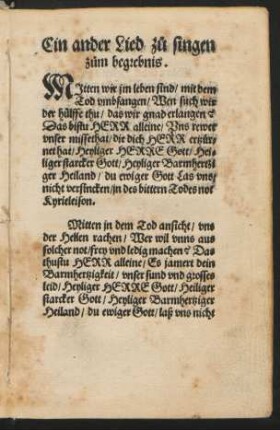 Ein ander Lied zů singen
zům begrebnis.
MItten wir im leben sind/ mit dem
Tod vmbfangen/ Wen süch wir
der hülffe thu/ das wir gnad erlangen?
Das bistu HERR alleine/ Vns rewet
vnser missethat/ die dich HERR erzür-
net hat/ Heyliger HERRE Gott/ Hei-
liger starcker Gott/ Heyliger Barmhertzi-
ger Heiland/ du ewiger Gott Las vns
nicht versincken/ in des bittern Todes not
Kyrieleison.
Mitten in dem Tod ansicht/ vns
der Hellen rachen/ Wer wil vnns aus
solcher not/ frey vnd ledig machen? Das
thustu HERR alleine/ Es jamert dein
Barmhertzigkeit/ vnser sund vnd grosses
leid/ Heyliger HERRE Gott/ Heiliger
starcker Gott/ Heyliger Barmhertziger
Heiland/ du ewiger Gott/ laß vns nicht